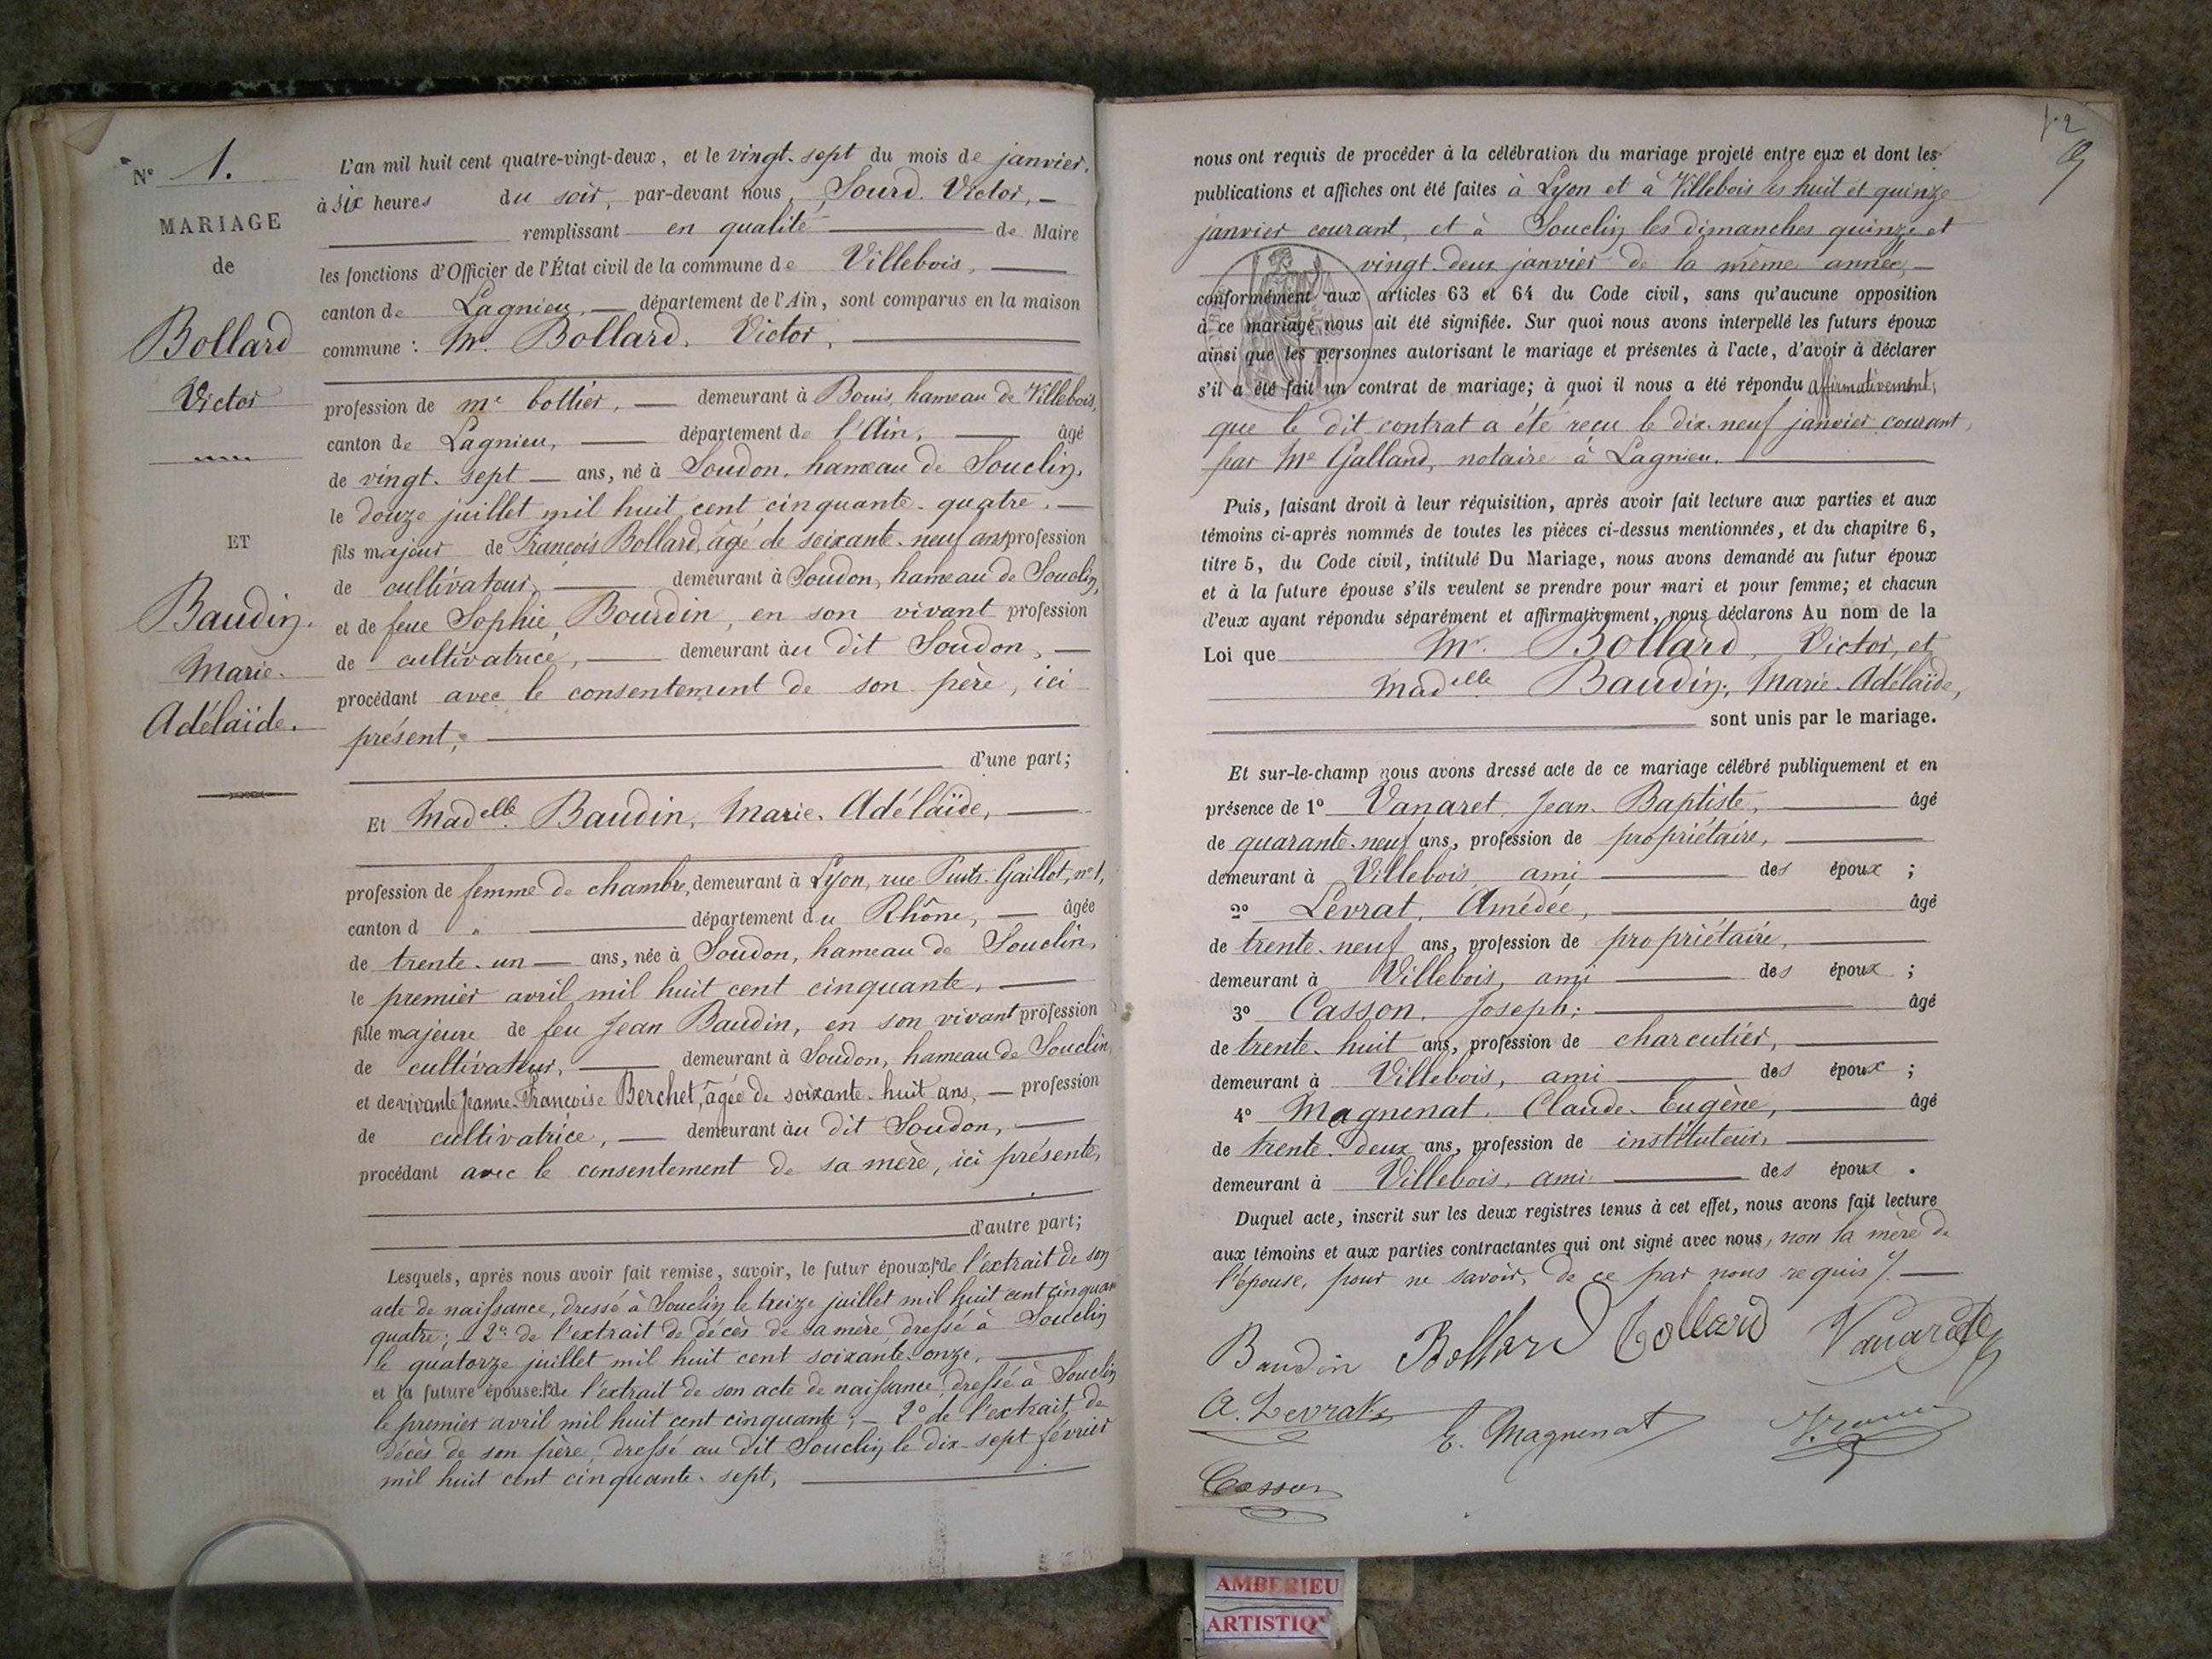 N° 1.
MARIAGE
de
Bollard
Victor
ET
Baudin.
Marie.
Adélaïde.
L'an mil huit cent quatre-vingt-deux, et le vingt-sept du mois de janvier,
à six heures du soir, par-devant nous, Sourd. Victor, —
remplissant en qualité de Maire
les fonctions d'Officier de l'État civil de la commune de Villebois,
canton de Lagnieu, département de l'Ain, sont comparus en la maison
commune : Mr Bollard. Victor,
profession de me bottier, demeurant à Bouis, hameau de Villebois,
canton de Lagnieu, département de l'Ain, âgé
de vingt-sept ans, né à Soudon, hameau de Souclin,
le douze juillet mil huit cent cinquante-quatre.
fils majeur de François Bollard, âgé de soixante-neuf ans profession
de cultivateur, demeurant à Soudon, hameau de Souclin,
et de feue Sophie Bourdin, en son vivant profession
de cultivatrice, demeurant au dit Soudon,
procédant avec le consentement de son père, ici
présent,
d'une part;
Et Madelle Baudin, Marie-Adélaïde,
profession de femme de chambre, demeurant à Lyon, rue Puits-Gaillot, n° 1,
canton d " département du Rhône, âgée
de trente-un ans, née à Soudon, hameau de Souclin,
le premier avril mil huit cent cinquante,
fille majeure de feu Jean Baudin, en son vivant profession
de cultivateur, demeurant à Soudon, hameau de Souclin,
et de vivante Jeanne-Françoise Berchet, âgée de soixante-huit ans, — profession
de cultivatrice, demeurant au dit Soudon,
procédant avec le consentement de sa mère, ici présente,
d'autre part;
Lesquels, après nous avoir fait remise, savoir, le futur époux: 1° de l'extrait de son
acte de naissance, dressé à Souclin le treize juillet mil huit cent cinquan
quatre; — 2° de l'extrait de décès de sa mère dressé à Souclin
le quatorze juillet mil huit cent soixante-onze,
et la future épouse: 1° de l'extrait de son acte de naissance, dressé à Souclin
le premier avril mil huit cent cinquante; — 2° de l'extrait de
décès de son père, dressé au dit Souclin le dix-sept février
mil huit cent cinquante-sept,
nous ont requis de procéder à la célébration du mariage projeté entre eux et dont les
publications et affiches ont été faites à Lyon et à Villebois les huit et quinze
janvier courant, et à Souclin les dimanches quinze et
vingt-deux janvier de la même année,
conformément aux articles 63 et 64 du Code civil, sans qu'aucune opposition
à ce mariage nous ait été signifiée. Sur quoi nous avons interpellé les futurs époux
ainsi que les personnes autorisant le mariage et présentes à l'acte, d'avoir à déclarer
s'il a été fait un contrat de mariage; à quoi il nous a été répondu affirmativement,
que le dit contrat a été reçu le dix-neuf janvier courant,
par Me Galland, notaire à Lagnieu.
Puis, faisant droit à leur réquisition, après avoir fait lecture aux parties et aux
témoins ci-après nommés de toutes les pièces ci-dessus mentionnées, et du chapitre 6,
titre 5, du Code civil, intitulé Du Mariage, nous avons demandé au futur époux
et à la future épouse s'ils veulent se prendre pour mari et pour femme; et chacun
d'eux ayant répondu séparément et affirmativement, nous déclarons Au nom de la
Loi que Mr. Bollard, Victor, et
Madelle Baudin, Marie-Adélaïde,
sont unis par le mariage.
Et sur-le-champ nous avons dressé acte de ce mariage célébré publiquement et en
présence de 1° Vanaret, Jean-Baptiste, âgé
de quarante-neuf ans, profession de propriétaire,
demeurant à Villebois, ami des époux ;
2° Levrat, Amédée, âgé
de trente-neuf ans, profession de propriétaire,
demeurant à Villebois, ami des époux ;
3° Casson, Joseph; âgé
de trente-huit ans, profession de charcutier,
demeurant à Villebois, ami des époux ;
4° Magnenat, Claude-Eugène, âgé
de trente-deux ans, profession de instituteur,
demeurant à Villebois, ami des époux .
Duquel acte, inscrit sur les deux registres tenus à cet effet, nous avons fait lecture
aux témoins et aux parties contractantes qui ont signé avec nous, non la mère de
l'épouse, pour ne savoir, de ce par nous requis
Baudin Bollard Bollard Vanaret
A. Levrat E. Magnenat
Casson
AMBERIEU
ARTISTIQ